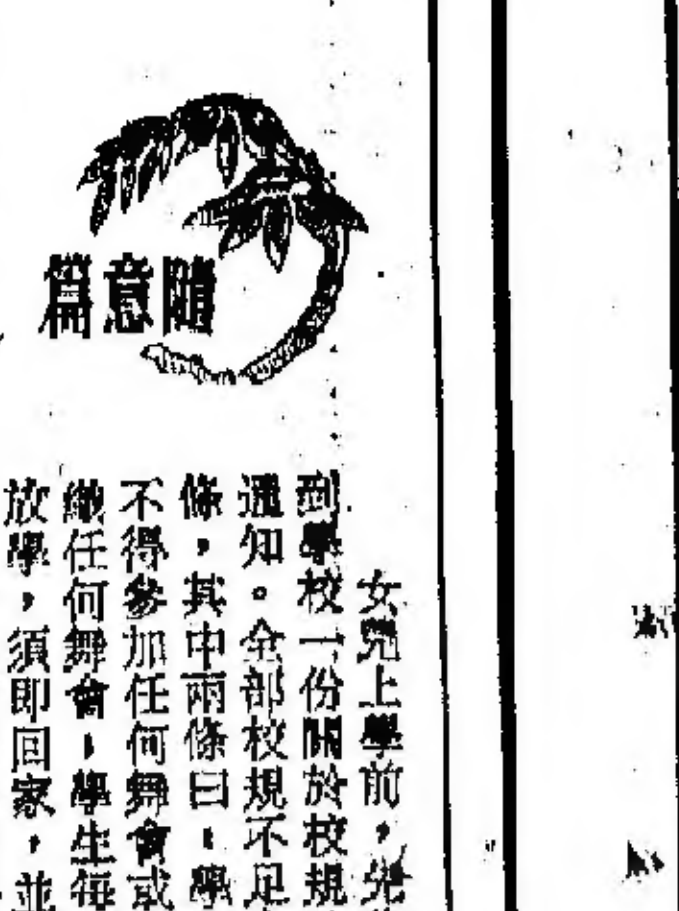 隨意篇
女兒上學前，先
到學校一份關於校規
通知。全部校規不足
條，其中兩條曰：學
不得參加任何舞會或
織任何舞會；學生每
放學，須即回家，並